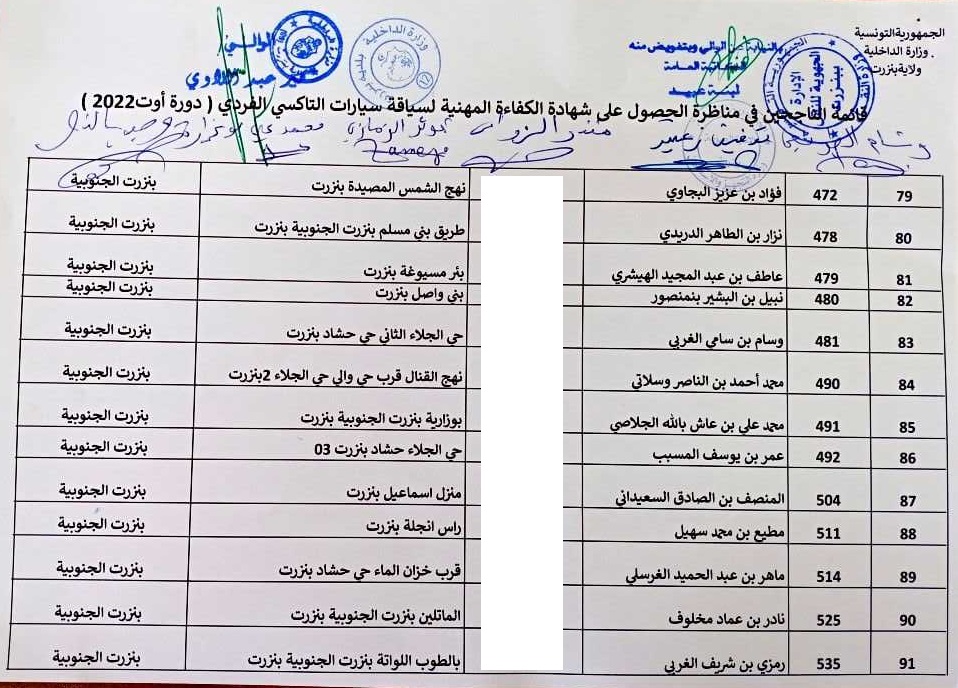 الجمهورية التونسية
وزارة الداخلية
ولاية بنزرت
الوالي
بالنيابة عن الوالي وبتفويض منه
العامة
وزارة الداخلية
قائمة الناجحين في مناظرة الحصول على شهادة الكفاءة المهنية لسياقة سيارات التاكسي الفردي ( دورة أوت2022 )
79 472 فؤاد بن عزيز البجاوي نهج الشمس المصيدة بنزرت بنزرت الجنوبية
80 478 نزار بن الطاهر الدريدي طريق بني مسلم بنزرت الجنوبية بنزرت بنزرت الجنوبية
81 479 عاطف بن عبد المجيد الهيشري بئر مسيوغة بنزرت بنزرت الجنوبية
82 480 نبيل بن البشير بنمنصور بني واصل بنزرت بنزرت الجنوبية
83 481 وسام بن سامي الغربي حي الجلاء الثاني حي حشاد بنزرت بنزرت الجنوبية
84 490 محمد أحمد بن الناصر وسلاتي نهج القنال قرب حي والي حي الجلاء 2بنزرت بنزرت الجنوبية
85 491 محمد علي بن عاش بالله الجلاصي بوزارية بنزرت الجنوبية بنزرت بنزرت الجنوبية
86 492 عمر بن يوسف المسبب حي الجلاء حشاد بنزرت 03 بنزرت الجنوبية
87 504 المنصف بن الصادق السعيداني منزل اسماعيل بنزرت بنزرت الجنوبية
88 511 مطيع بن محمد سهيل راس انجلة بنزرت بنزرت الجنوبية
89 514 ماهر بن عبد الحميد الغرسلي قرب خزان الماء حي حشاد بنزرت بنزرت الجنوبية
90 525 نادر بن عماد مخلوف الماتلين بنزرت الجنوبية بنزرت بنزرت الجنوبية
91 535 رمزي بن شريف الغربي بالطوب اللواتة بنزرت الجنوبية بنزرت بنزرت الجنوبية